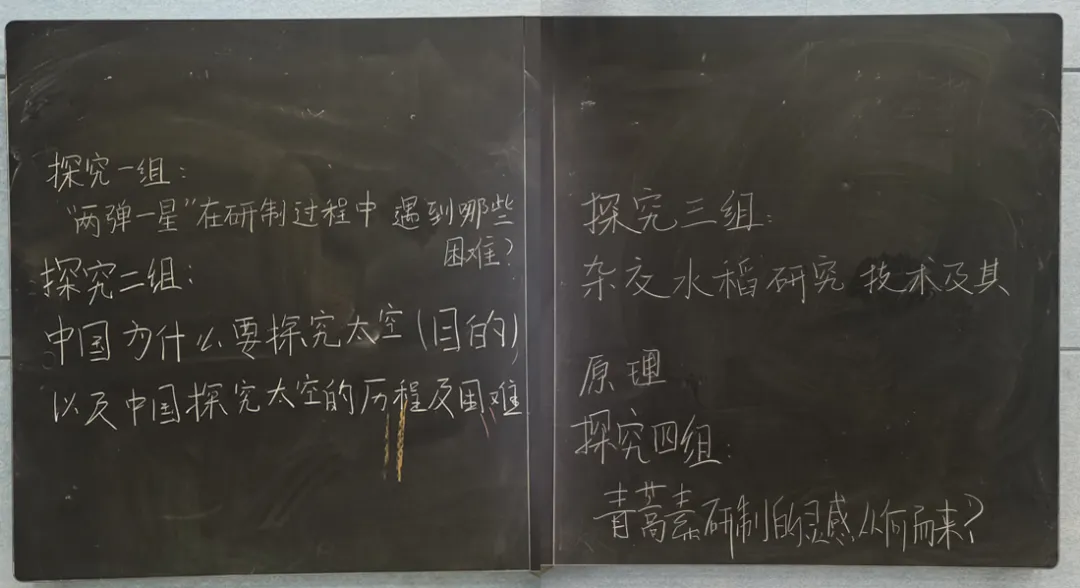 探究一组：
“两弹一星”在研制过程中 遇到哪些
困难？
探究二组：
中国为什么要探究太空（目的）
以及中国探究太空的历程及困难
探究三组：
杂交水稻研究 技术及其
原理
探究四组：
青蒿素研制的灵感从何而来？